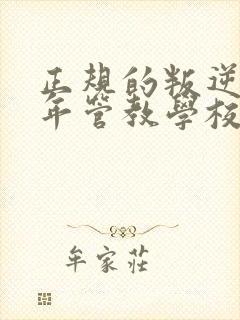 正規的叛逆
年管教學校
牟家莊